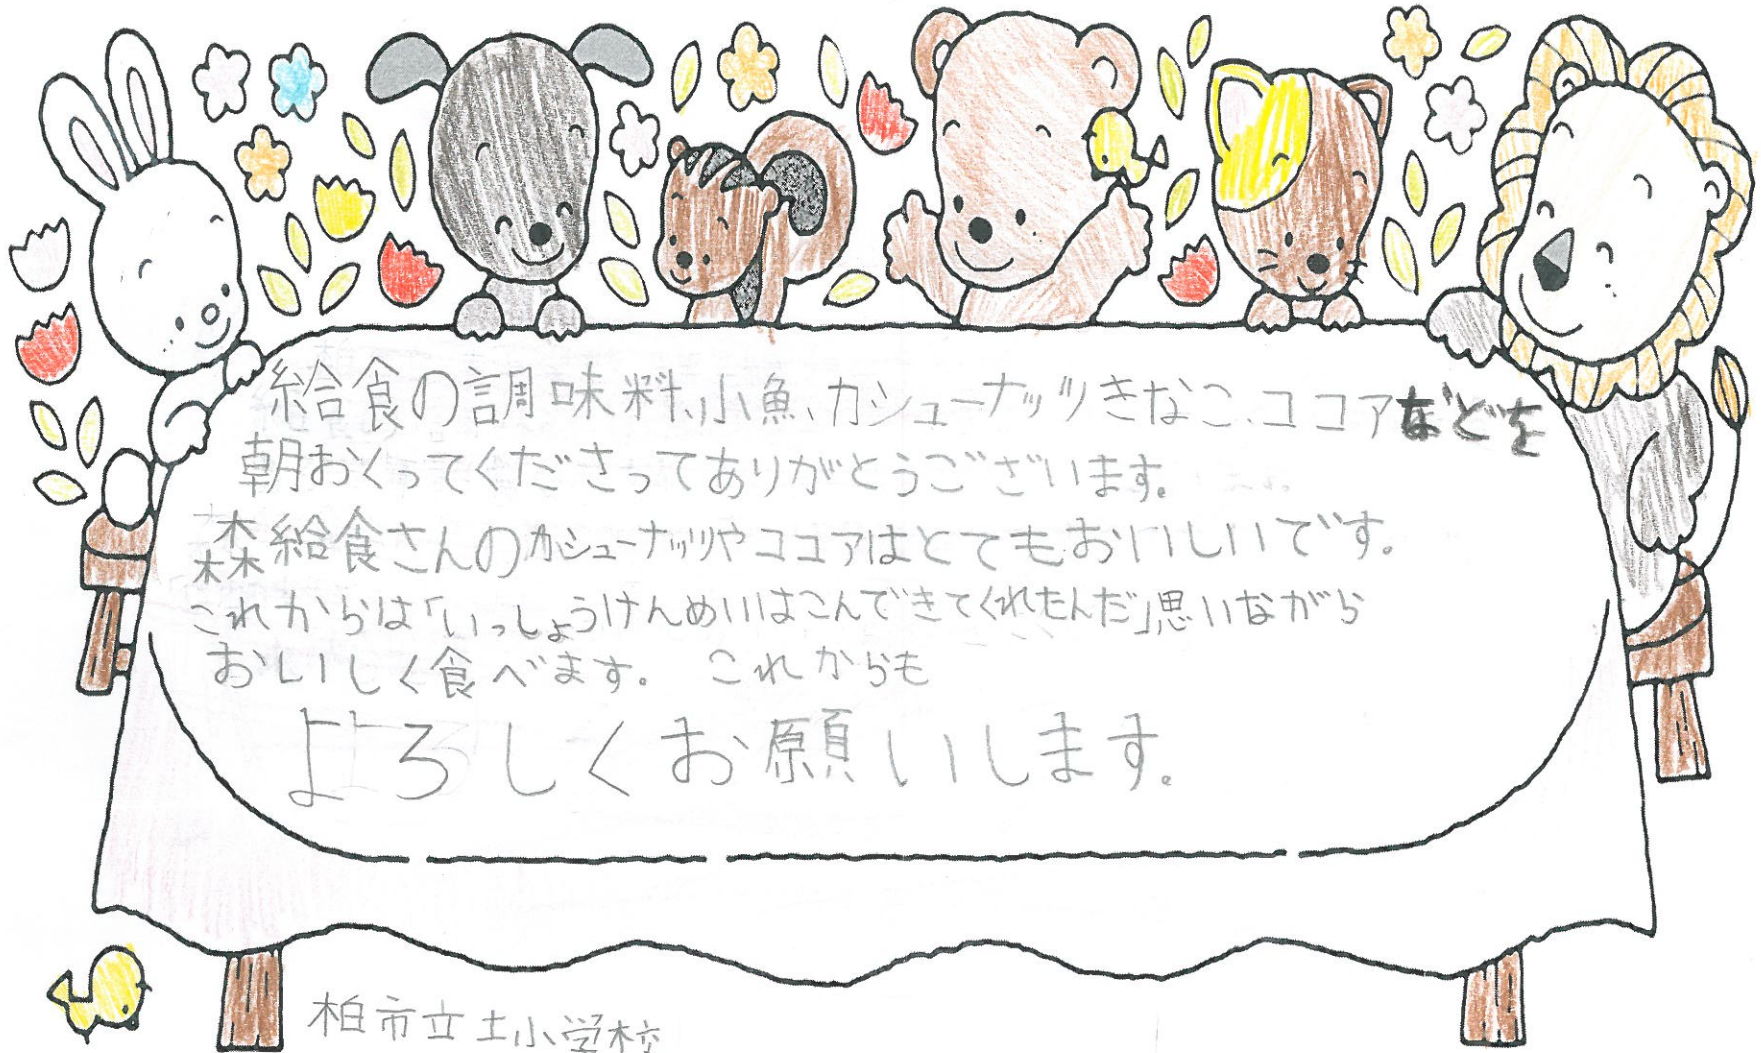 給食の調味料、小魚、カシューナッツきなこ、ココアなどを
朝おくってくださってありがとうございます。
森給食さんのカシューナッツやココアはとてもおいしいです。
これからは「いっしょうけんめいはこんできてくれたんだ」思いながら
おいしく食べます。 これからも
よろしくお願いします。
柏市立土小学校